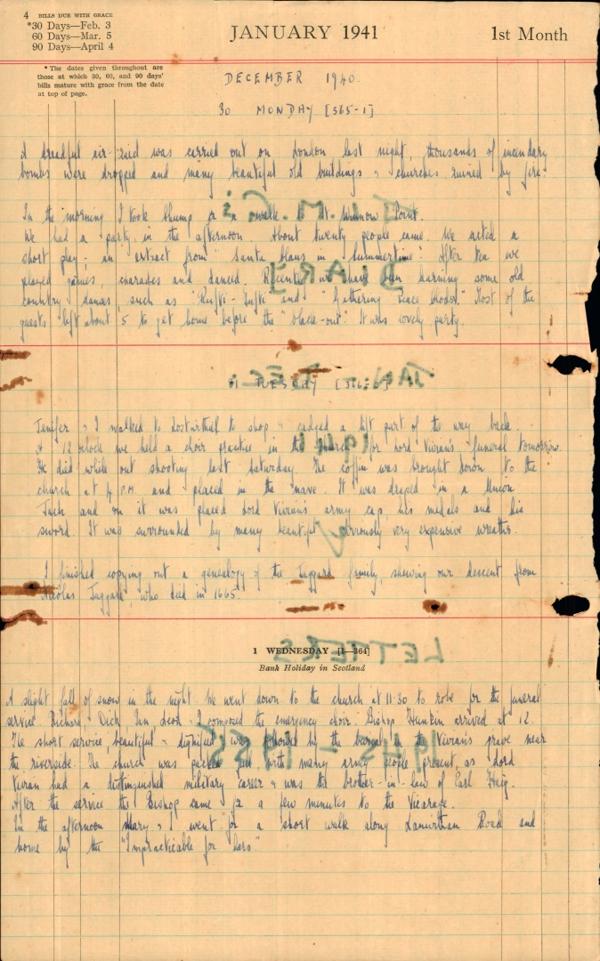 4 BILLS DUE WITH GRACE
*30 Days—Feb. 3
60 Days—Mar. 5
90 Days—April 4
JANUARY 1941
1st Month
* The dates given throughout are
those at which 30, 60, and 90 days'
bills mature with grace from the date
at top of page.
DECEMBER 1940.
30 MONDAY [365-1]
A dreadful air-raid was carried out on London last night, thousands of incendiary
bombs were dropped and many beautiful old buildings & churches ruined by fire.
In the morning I took Thump for a walk to St. Winnow Point.
We had a party in the afternoon. About twenty people came. We acted a
short play; an extract from "Santa Claus in Summertime". After tea we
played games, charades and danced. Recently we have been learning some old
country dances, such as "Rufty-Tufty" and "Gathering Peace cods". Most of the
guests left about 5 to get home before the "black-out". It was lovely party.
31 TUESDAY [366-]
Jenifer & I walked to Lostwithiel to shop & cadged a lift part of the way back.
At 12 o'clock we held a choir practice in the church for Lord Vivian's funeral tomorrow.
He died while out shooting last Saturday. The coffin was brought down to the
church at 4 P.M. and placed in the nave. It was draped in a Union
Jack and on it was placed Lord Vivian's army cap, his medals and his
sword. It was surrounded by many beautiful & obviously very expensive wreaths.
I finished copying out a genealogy of the Taggard family, shewing our descent from
Nicolas Taggard, who died in 1665.
1 WEDNESDAY [1—364]
Bank Holiday in Scotland
A slight fall of snow in the night. We went down to the church at 11.30 to robe for the funeral
service. Richard, Dick, Ian, & I composed the emergency choir. Bishop Hunkin arrived at 12.
The short service, beautiful & dignified, was followed by the burial in the Vivian's grave near
the riverside. The church was packed full with many army people present, as Lord
Vivian had a distinguished military career & was the brother-in-law of Earl Haig.
After the service the Bishop came for a few minutes to the Vicarage.
In the afternoon Mary & I went for a short walk along Lanwithan Road and
home by the "Impracticable for Cars".
J. M. C's
DIARY
JAN - DEC
1941
LETTERS
1945 - 1955